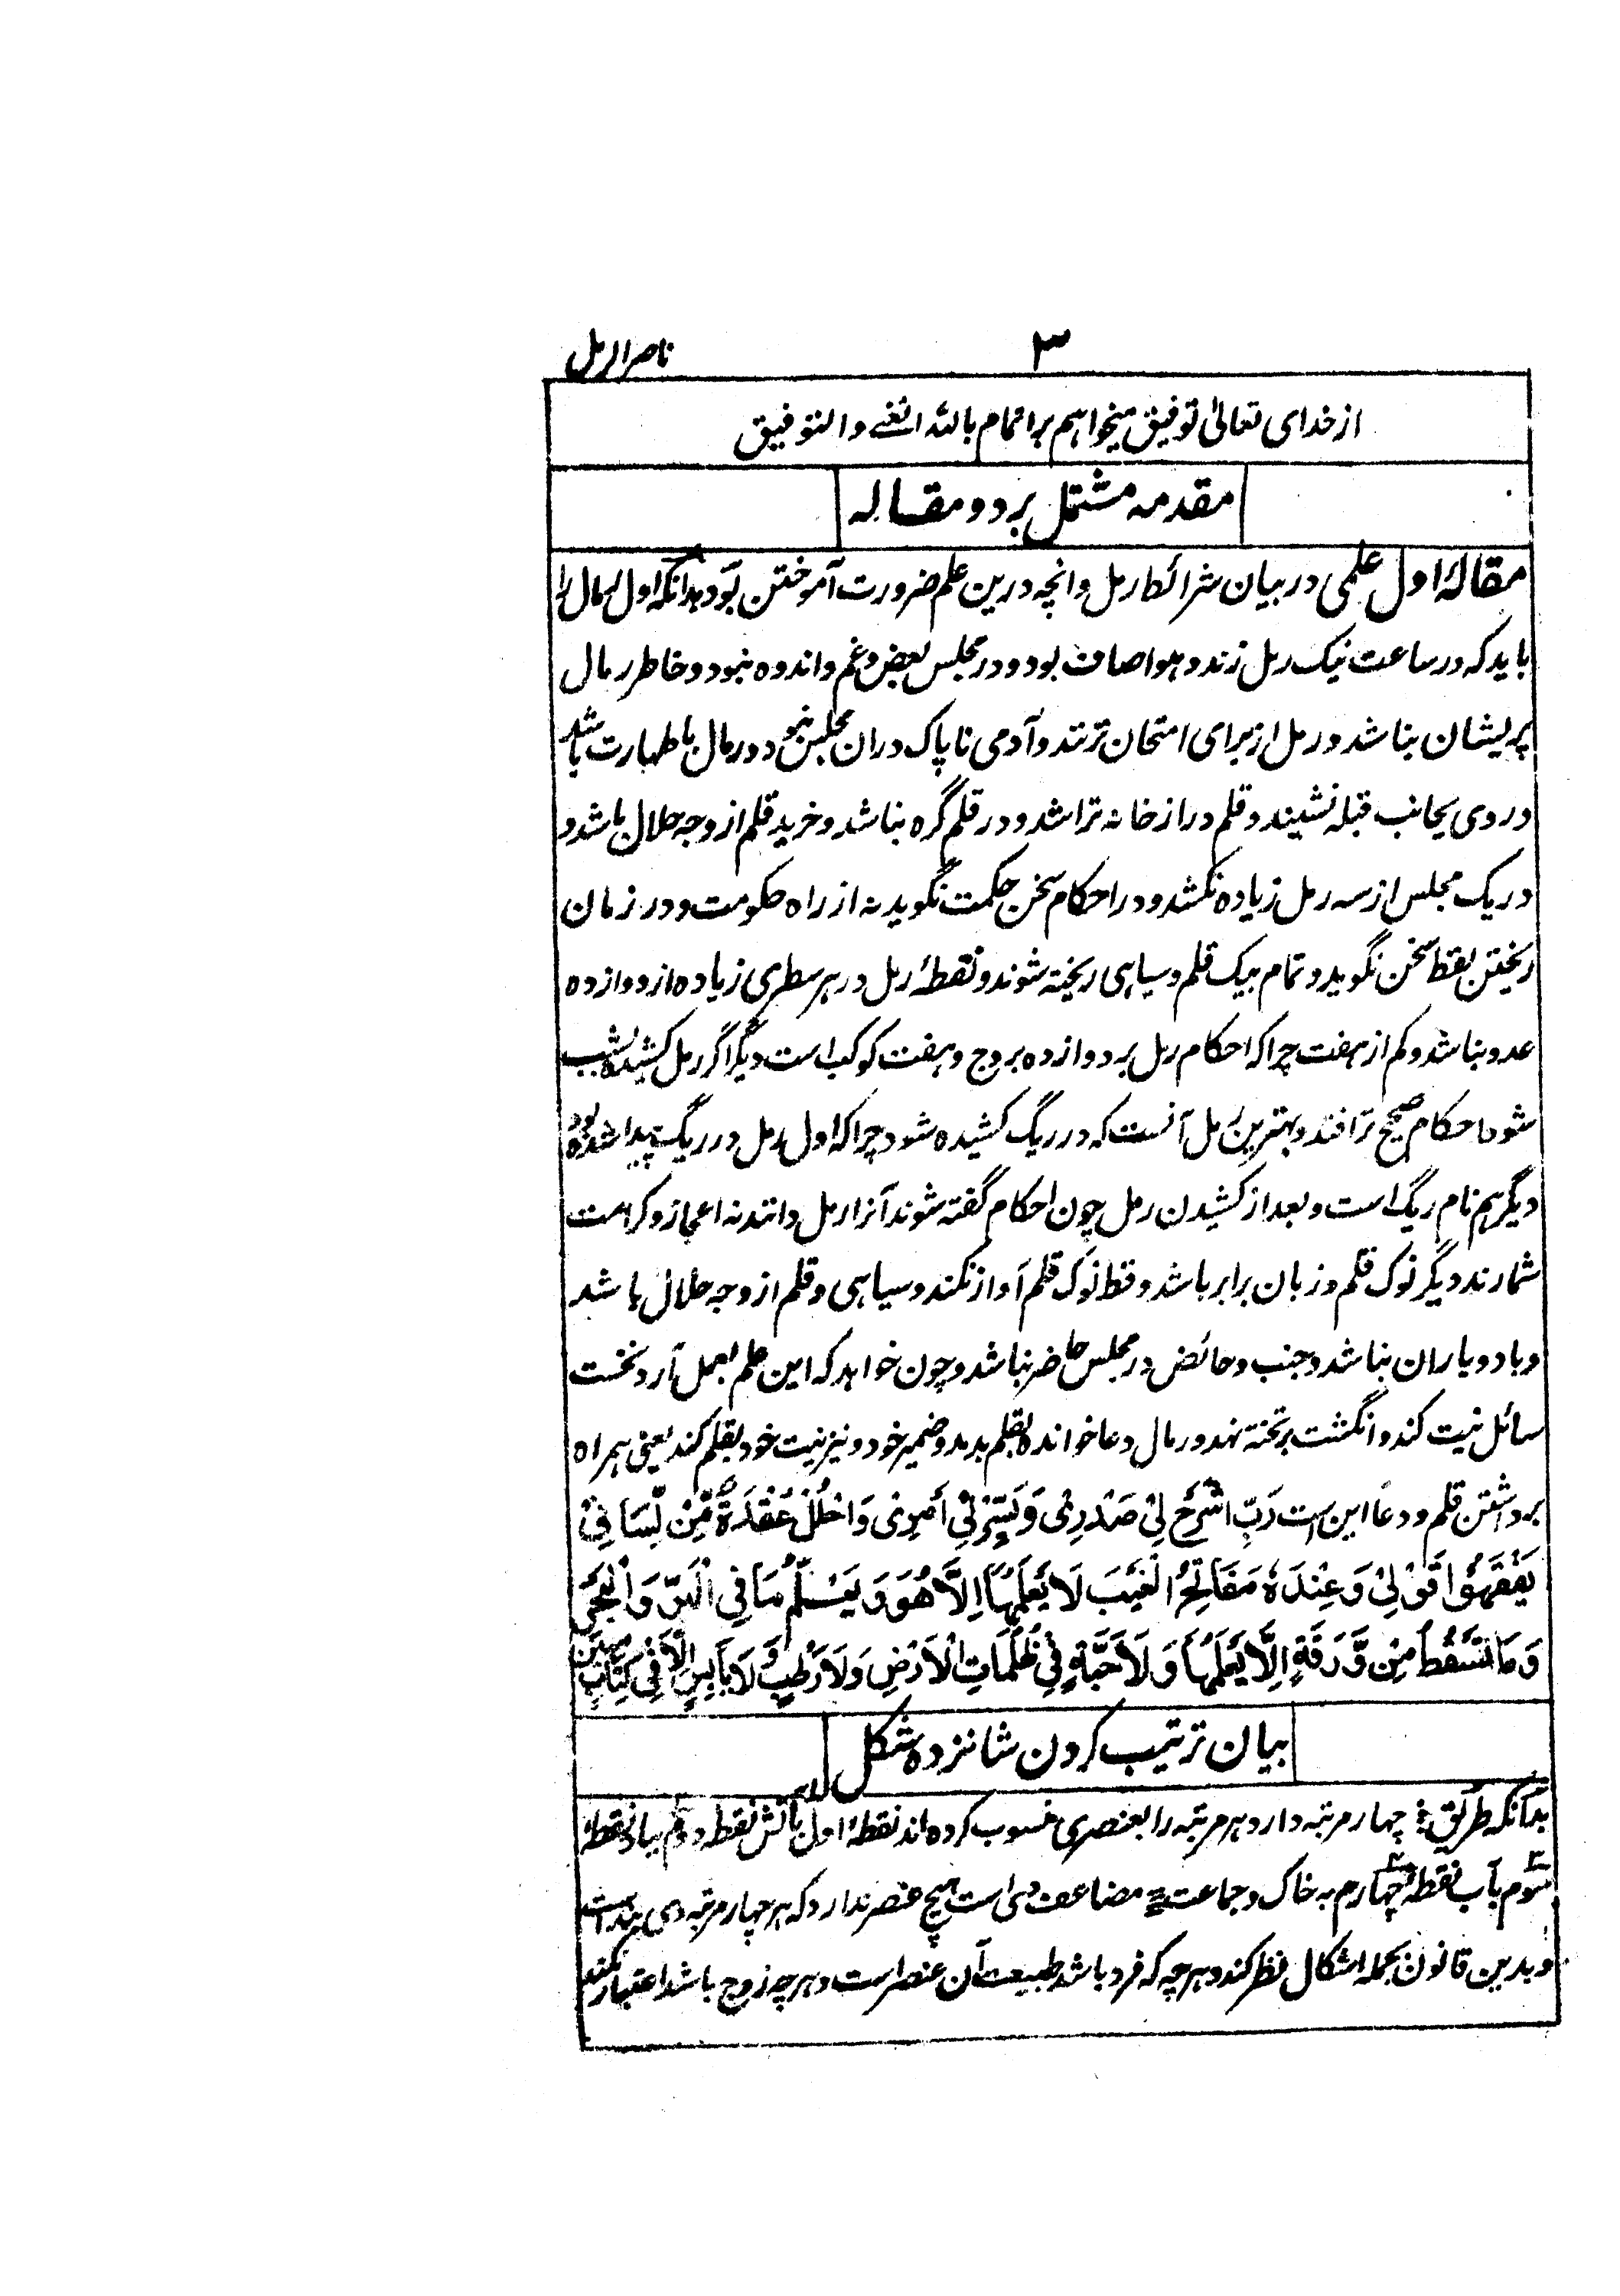 ۳ ناصر الرمل
از خدای تعالیٰ توفیق میخواهم بر اتمام بالله والتوفیق
مقدمه مشتمل بر دو مقاله
مقالۂ اول علمی در بیان شرائط رمل وانچه درین علم ضرورت آموختن بود بدانکه اول رمال را
باید که در ساعت نیک رمل زند و هوا صاف بود و در مجلس بعض و غم و اندوه نبود و خاطر رمال
پریشان نباشد و رمل از برای امتحان نزند و آدمی ناپاک دران مجلس نبود و رمال با طهارت باشد
و روی بجانب قبله نشیند و قلم دراز خانه تراشد و در قلم گره نباشد و خرید قلم از وجه حلال باشد و
در یک مجلس از سه رمل زیاده نکشد و در احکام سخن حکمت نگوید نه از راه حکومت و در زمان
ریختن نقط سخن نگوید و تمام بیک قلم و سیاهی ریخته شوند و نقطۂ رمل در هر سطری زیاده از دوازده
عدد نباشد و کم از هفت چرا که احکام رمل بر دوازده بروج و هفت کوکب است دیگر اگر رمل کشیده بشب
شود احکام صحیح تر افتد و بهترین رمل آنست که در ریگ کشیده شود چرا که اول رمل در ریگ پیدا شده بود
دیگر هم نام ریگ است و بعد از کشیدن رمل چون احکام گفته شوند آنرا رمل دانند نه اعجاز و کرامت
شمارند دیگر نوک قلم و زبان برابر باشد و قط نوک قلم آواز نکند و سیاهی و قلم از وجه حلال باشد
و باد و باران نباشد و جنب و حائض در مجلس حاضر نباشد و چون خواهد که این علم بعمل آرد نخست
سائل نیت کند و انگشت بر تخته نهد و رمال دعا خوانده بقلم بدمد و ضمیر خود و نیز نیت خود بقلم کند یعنی همراه
برداشتن قلم و دعا این است رَبِّ اشْرَحْ لِیْ صَدْرِیْ وَیَسِّرْ لِیْ اَمْرِیْ وَاحْلُلْ عُقْدَةً مِّنْ لِّسَانِیْ
یَفْقَهُوْا قَوْلِیْ وَعِنْدَهٗ مَفَاتِحُ الْغَیْبِ لَا یَعْلَمُهَا اِلَّا هُوَ وَیَعْلَمُ مَا فِی الْبَرِّ وَالْبَحْرِ
وَمَا تَسْقُطُ مِنْ وَّرَقَةٍ اِلَّا یَعْلَمُهَا وَلَا حَبَّةٍ فِیْ ظُلُمَاتِ الْاَرْضِ وَلَا رَطْبٍ وَّلَا یَابِسٍ اِلَّا فِیْ کِتَابٍ مُّبِیْنٍ
بیان ترتیب کردن شانزده شکل
بدآنکه طریق چهار مرتبه دارد هر مرتبه را بعنصری منسوب کرده اند نقطۂ اول بآتش نقطه دوم بباد نقطۂ
سوم بآب نقطه چهارم به خاک و جماعت مضاعف وی است هیچ عنصر ندارد که هر چهار مرتبه وی بند است
و بدین قانون بجمله اشکال نظر کند و هر چه که فرد باشد طبیعت آن عنصر است و هر چه زوج باشد اعتبار نکند